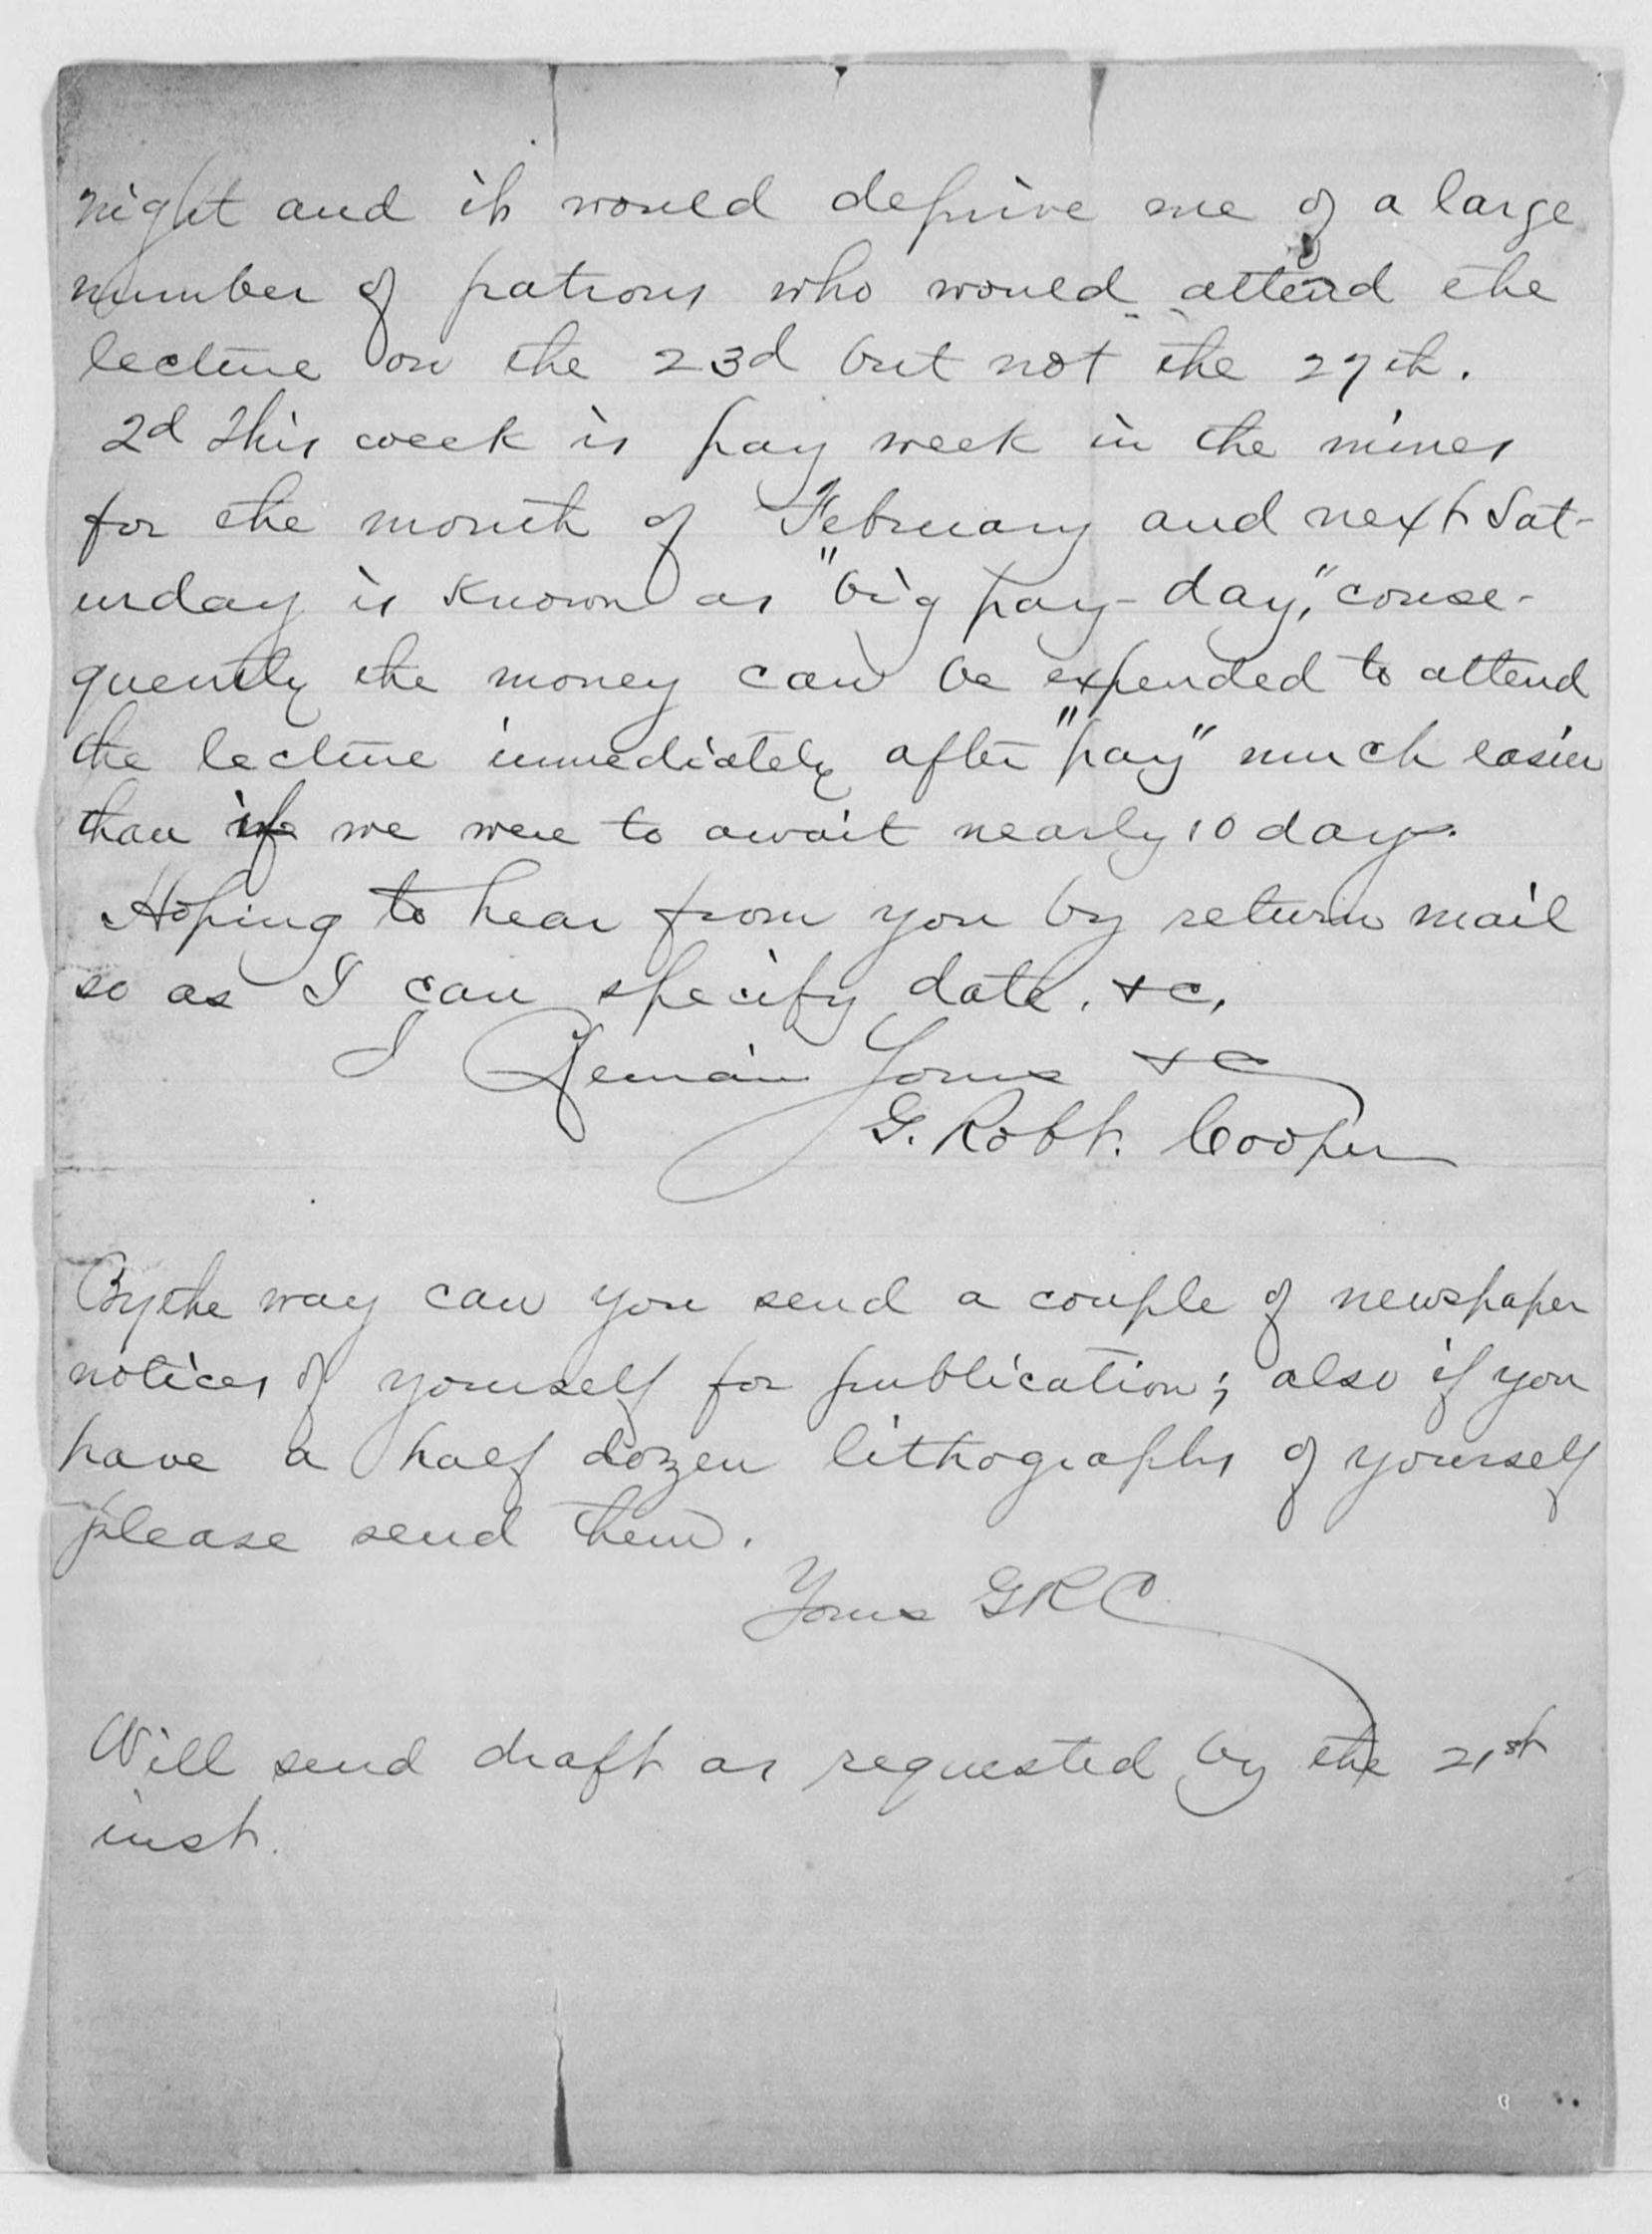 night and it would deprive me of a large
number of patrons who would attend the
lecture on the 23d but not the 27th.
2d This week is pay week in the mines
for the month of February and next Sat-
urday is known as "big pay-day," conse-
quently the money can be expended to attend
the lecture immediately after "pay" much easier
than if we were to await nearly 10 days.
Hoping to hear from you by return mail
so as I can specify date, &c,
I Remain Yours &c
G. Robt. Cooper
By the way can you send a couple of newspaper
notices of yourself for publication; also if you
have a half dozen lithographs of yourself
please send them.
Yours GRC
Will send draft as requested by the 21st
inst.